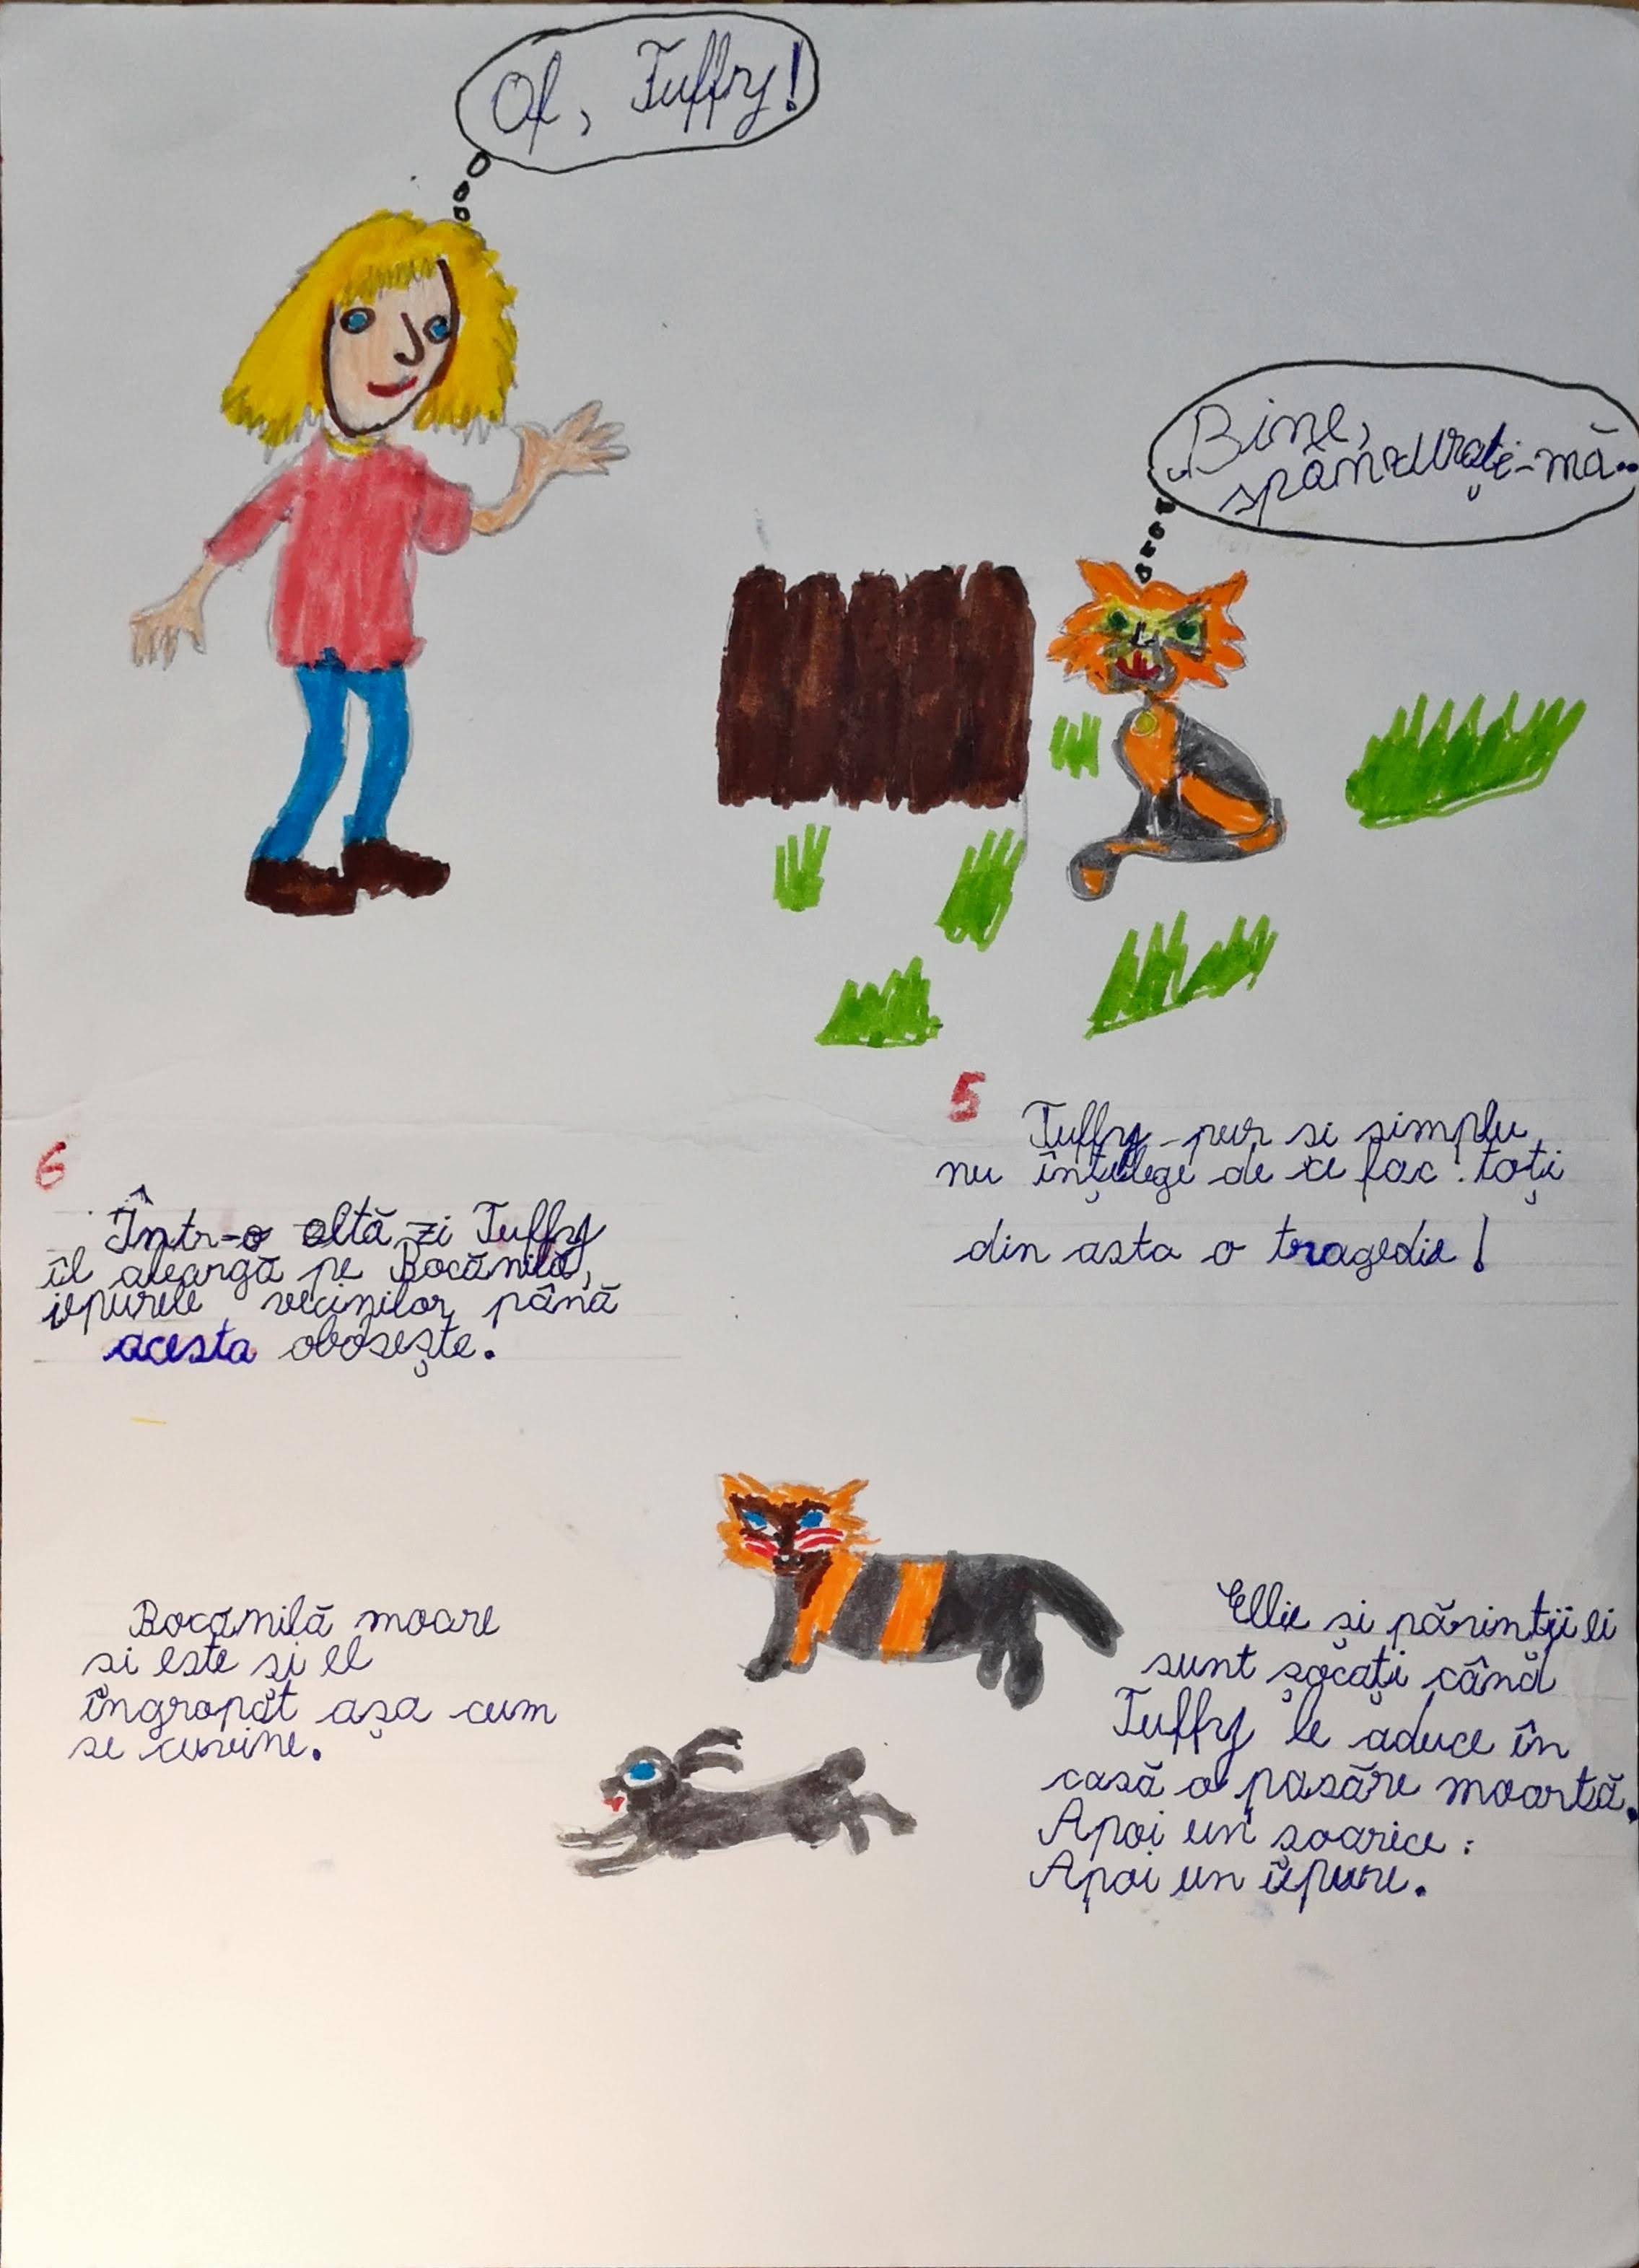 Of, Tuffy!
Bine,
spânzurați-mă..
5
Tuffy - pur si simplu
nu înțelege de ce fac toți
din asta o tragedie!
6
Într-o altă zi Tuffy
îl aleargă pe Bocănilă,
iepurele vecinilor până
acesta obosește.
Bocănilă moare
si este și el
îngropat așa cum
se cuvine.
Ellie și părinții ei
sunt șocați când
Tuffy le aduce în
casă o pasăre moartă.
Apoi un șoarice.
Apoi un iepure.